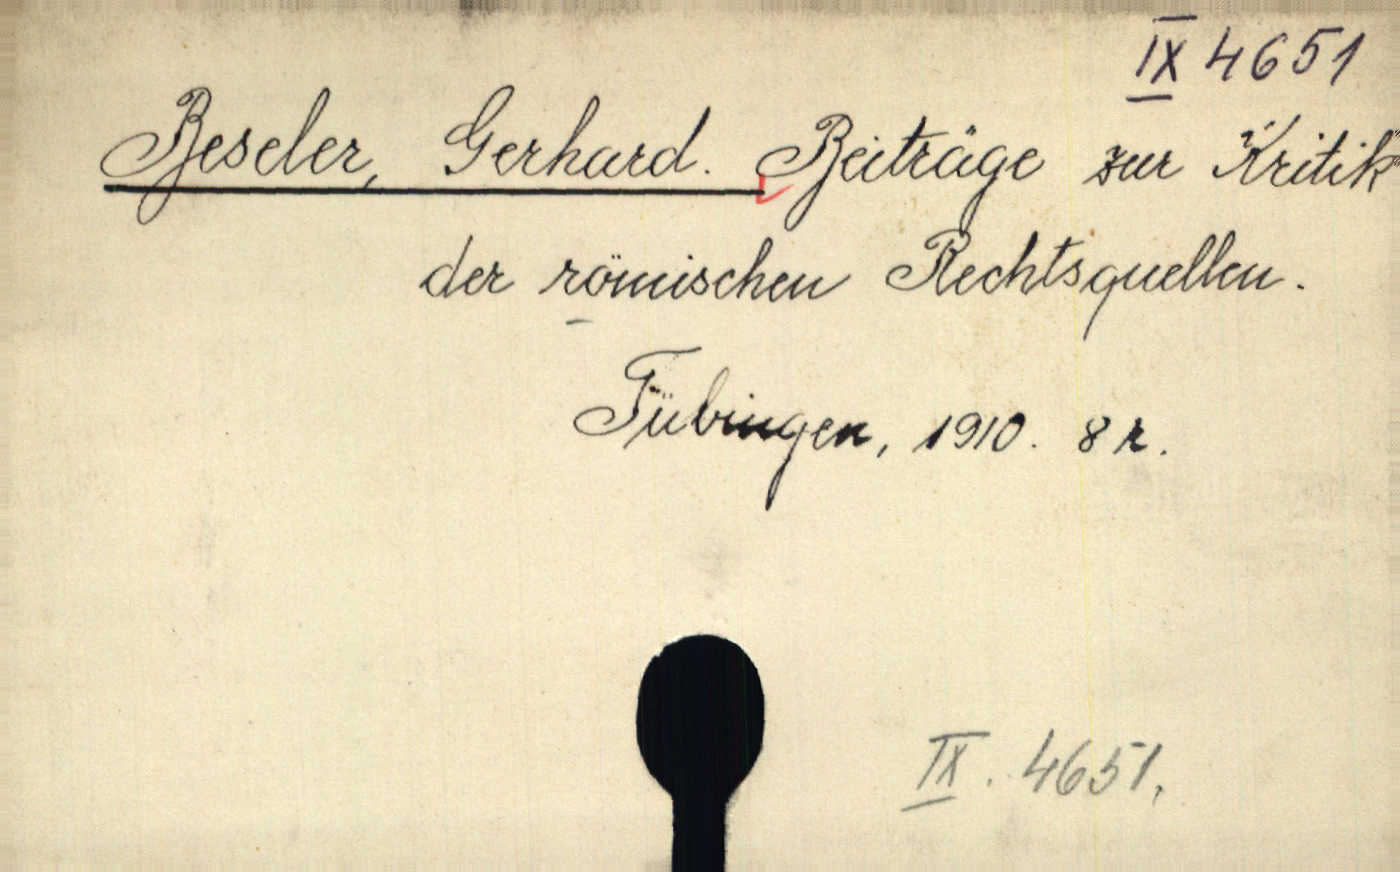 IX 4651
Beseler, Gerhard. Beiträge zur Kritik
der römischen Rechtsquellen.
Tübingen, 1910. 8 r.
IX. 4651.